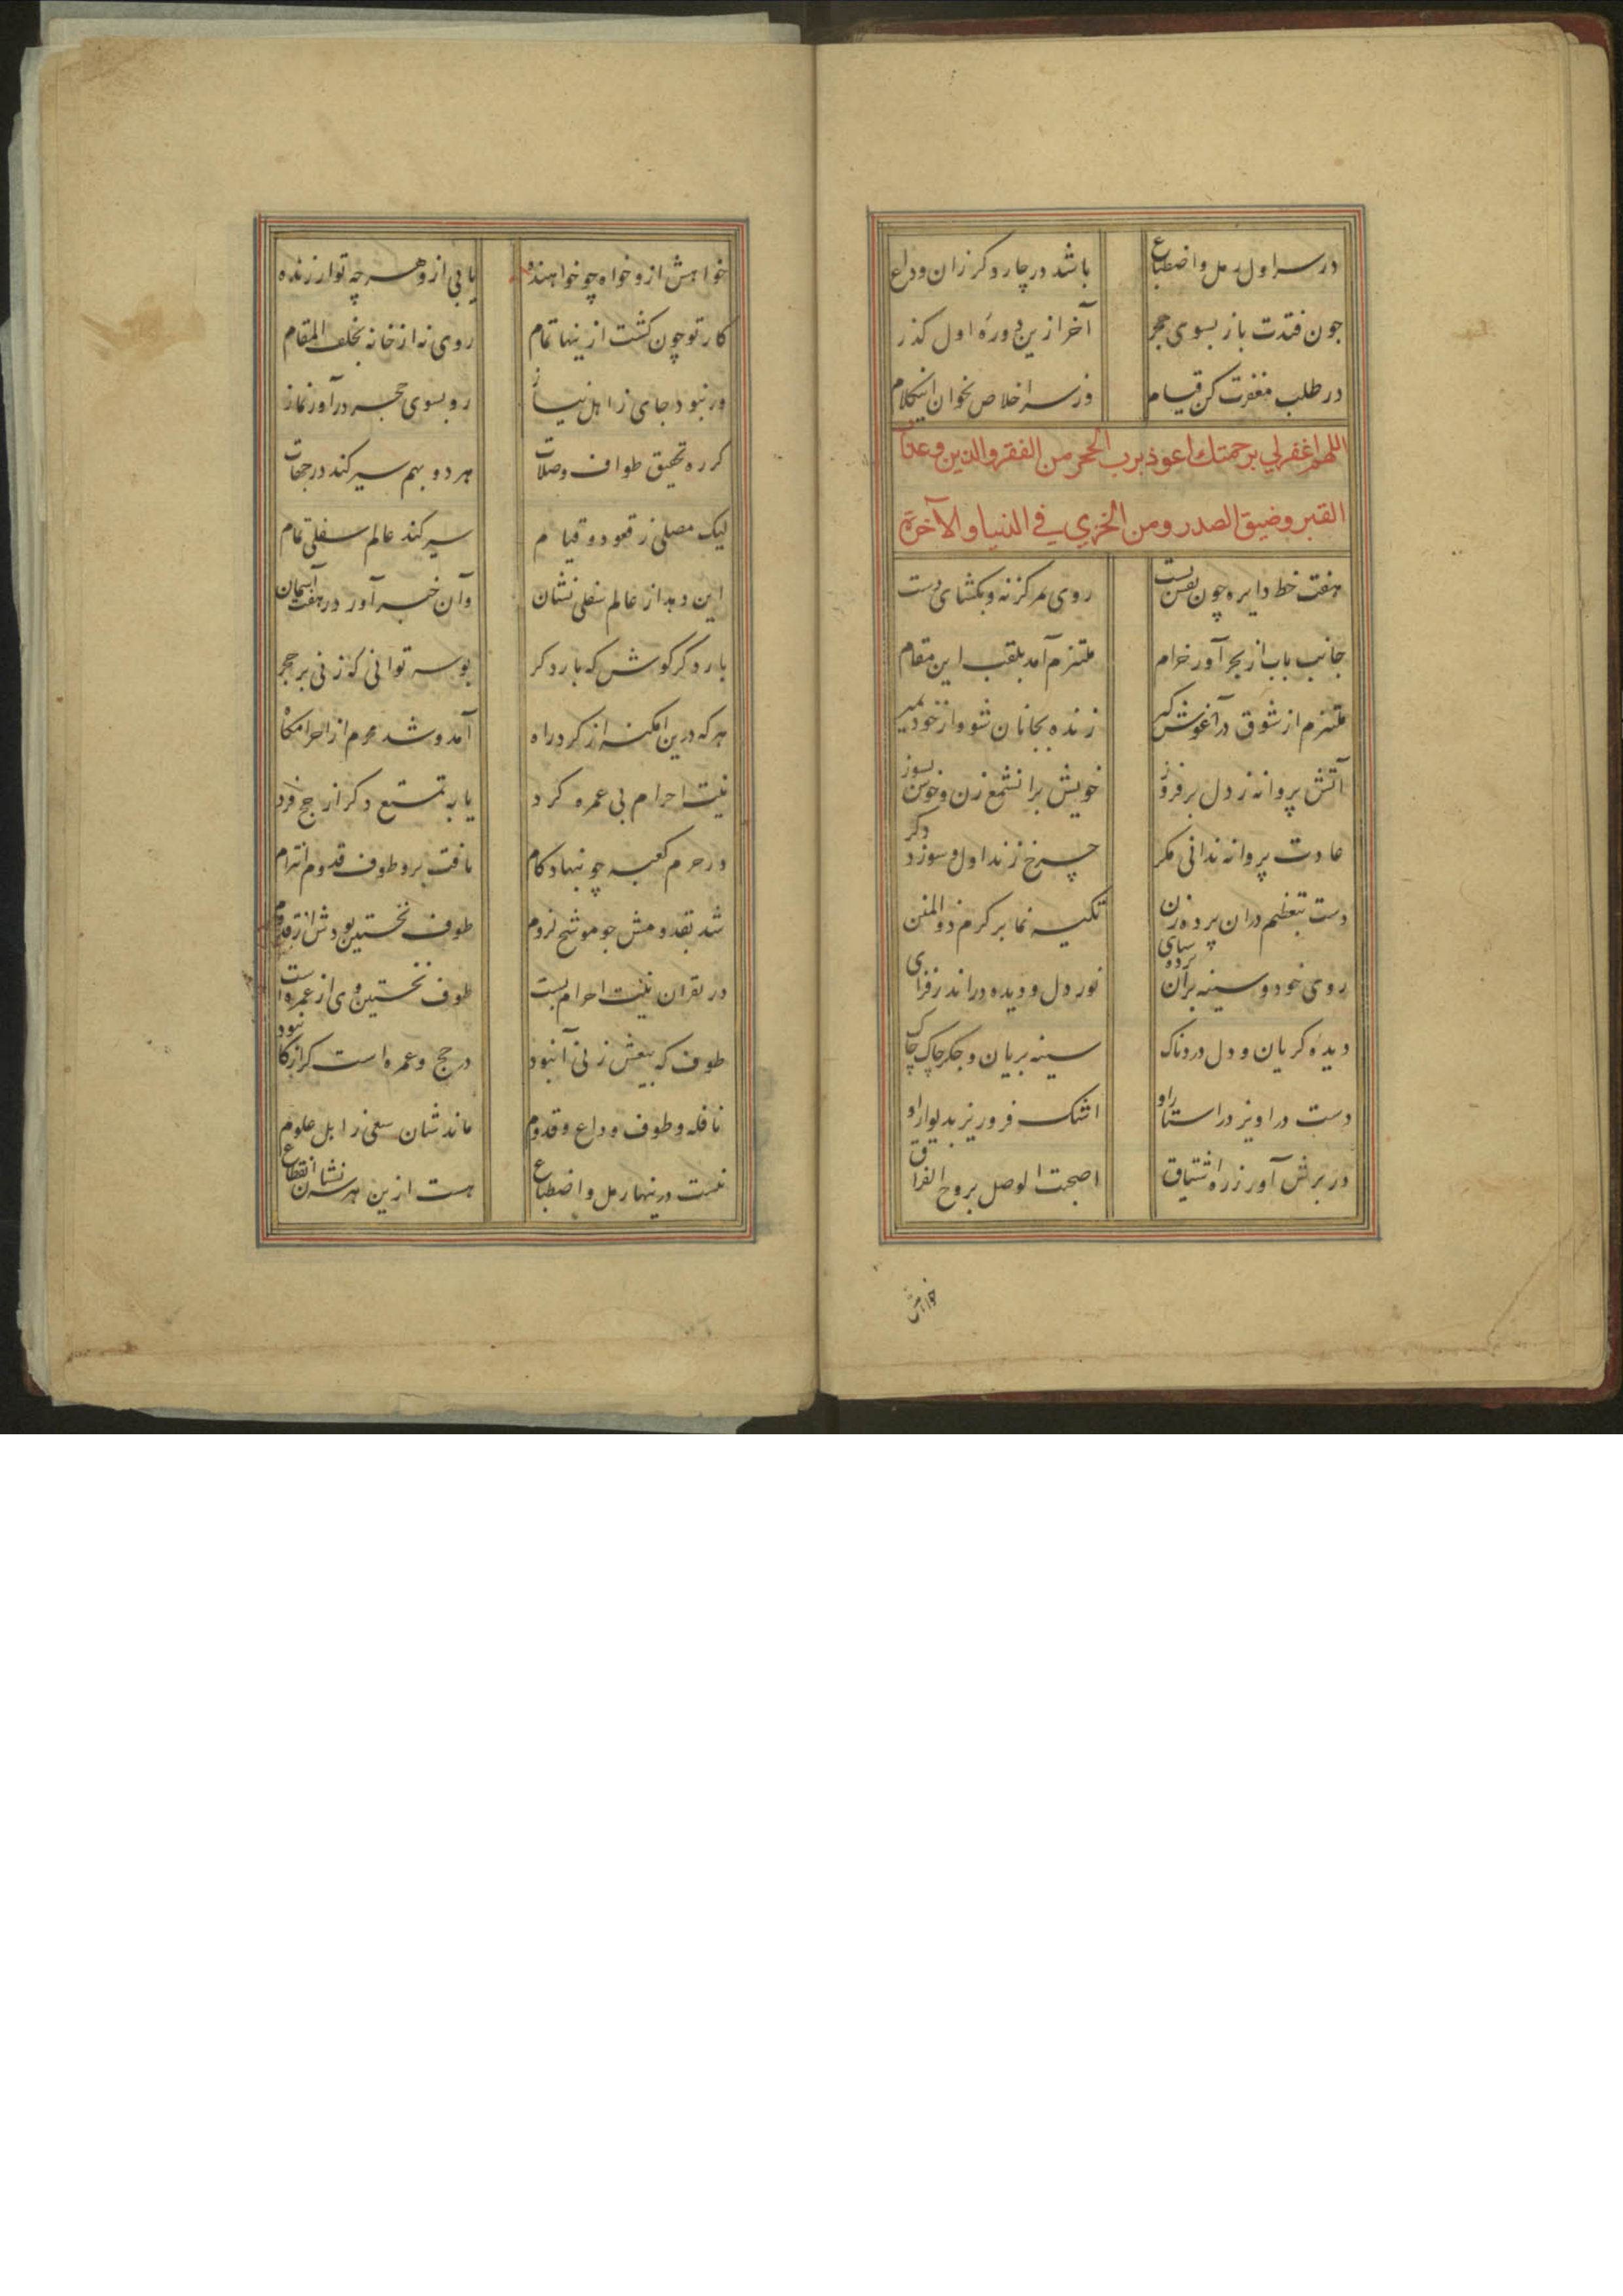 در سه اول رمل و اضطباع باشد در چار دکر زان وداع
چون فتدت باز بسوی حجر آخر ازین دورهٔ اول کذر
در طلب مغفرت کن قیام وز سر اخلاص بخوان اینکلام
اللهم اغفرلي برحمتك اعوذ برب الحجر من الفقر والدين وعذاب
القبر وضيق الصدر ومن الخزي في الدنيا والآخرة
هفت خط دایره چون نقش بست روی بمرکز نه و بکشای دست
جانب باب از حجر آور خرام ملتزم آمد بلقب این مقام
ملتزم از شوق در آغوش کیر زنده بجانان شو و از خود بمیر
آتش پروانه ز دل بر فروز خویش بران شمع زن و خوش بسوز
عادت پروانه ندانی مکر چرخ زند اول و سوزد دکر
دست بتعظیم در آن پرده زن تکیه نما بر کرم ذوالمنن
روی خود و سینه بران پرده سای نور دل و دیده در اندر فزای
دیده کریان و دل دردناک سینه بریان و جکر چاک چاک
دست در اویز در استار او اشک فرو ریز بدیوار او
در برش آور ز ره اشتیاق اصبحت الوصل بروح الفراق
خواهش
خواهش ازو خواه چو خواهنده یابی ازو هر چه تو ارزنده
کار تو چون کشت ازینها تمام روی نه از خانه بخلف المقام
ور نبود جای ز اهل نیاز رو بسوی حجر در آور نماز
کر ره تحقیق طواف و صلات هر دو بهم سیر کند در جهات
لیک مصلی ز قعود و قیام سیر کند عالم سفلی تمام
این دهد از عالم سفلی نشان وآن خبر آورد ز هفت آسمان
بار دکر کوش که بار دکر بوسه توانی که زنی بر حجر
هر که درین امکنه از کرد راه آمد و شد محرم از احرامکاه
نیت احرام بی عمره کرد یا به تمتع و کر از حج فرد
در حرم کعبه چو بنهاد کام یافت برو طوف قدوم التزام
شد بقدومش چو موشح لزوم طوف نخستین بودش از قدوم
ور بقران نیت احرام بست طوف نخستین وی از عمره است
طوف که بیعش ز نی آنبود در حج و عمره است کر ارکان بود
نافله و طوف وداع و قدوم ماندشان سعی ز اهل علوم
نیست درینها رمل و اضطباع هست ازین هر سه نشان انقطاع